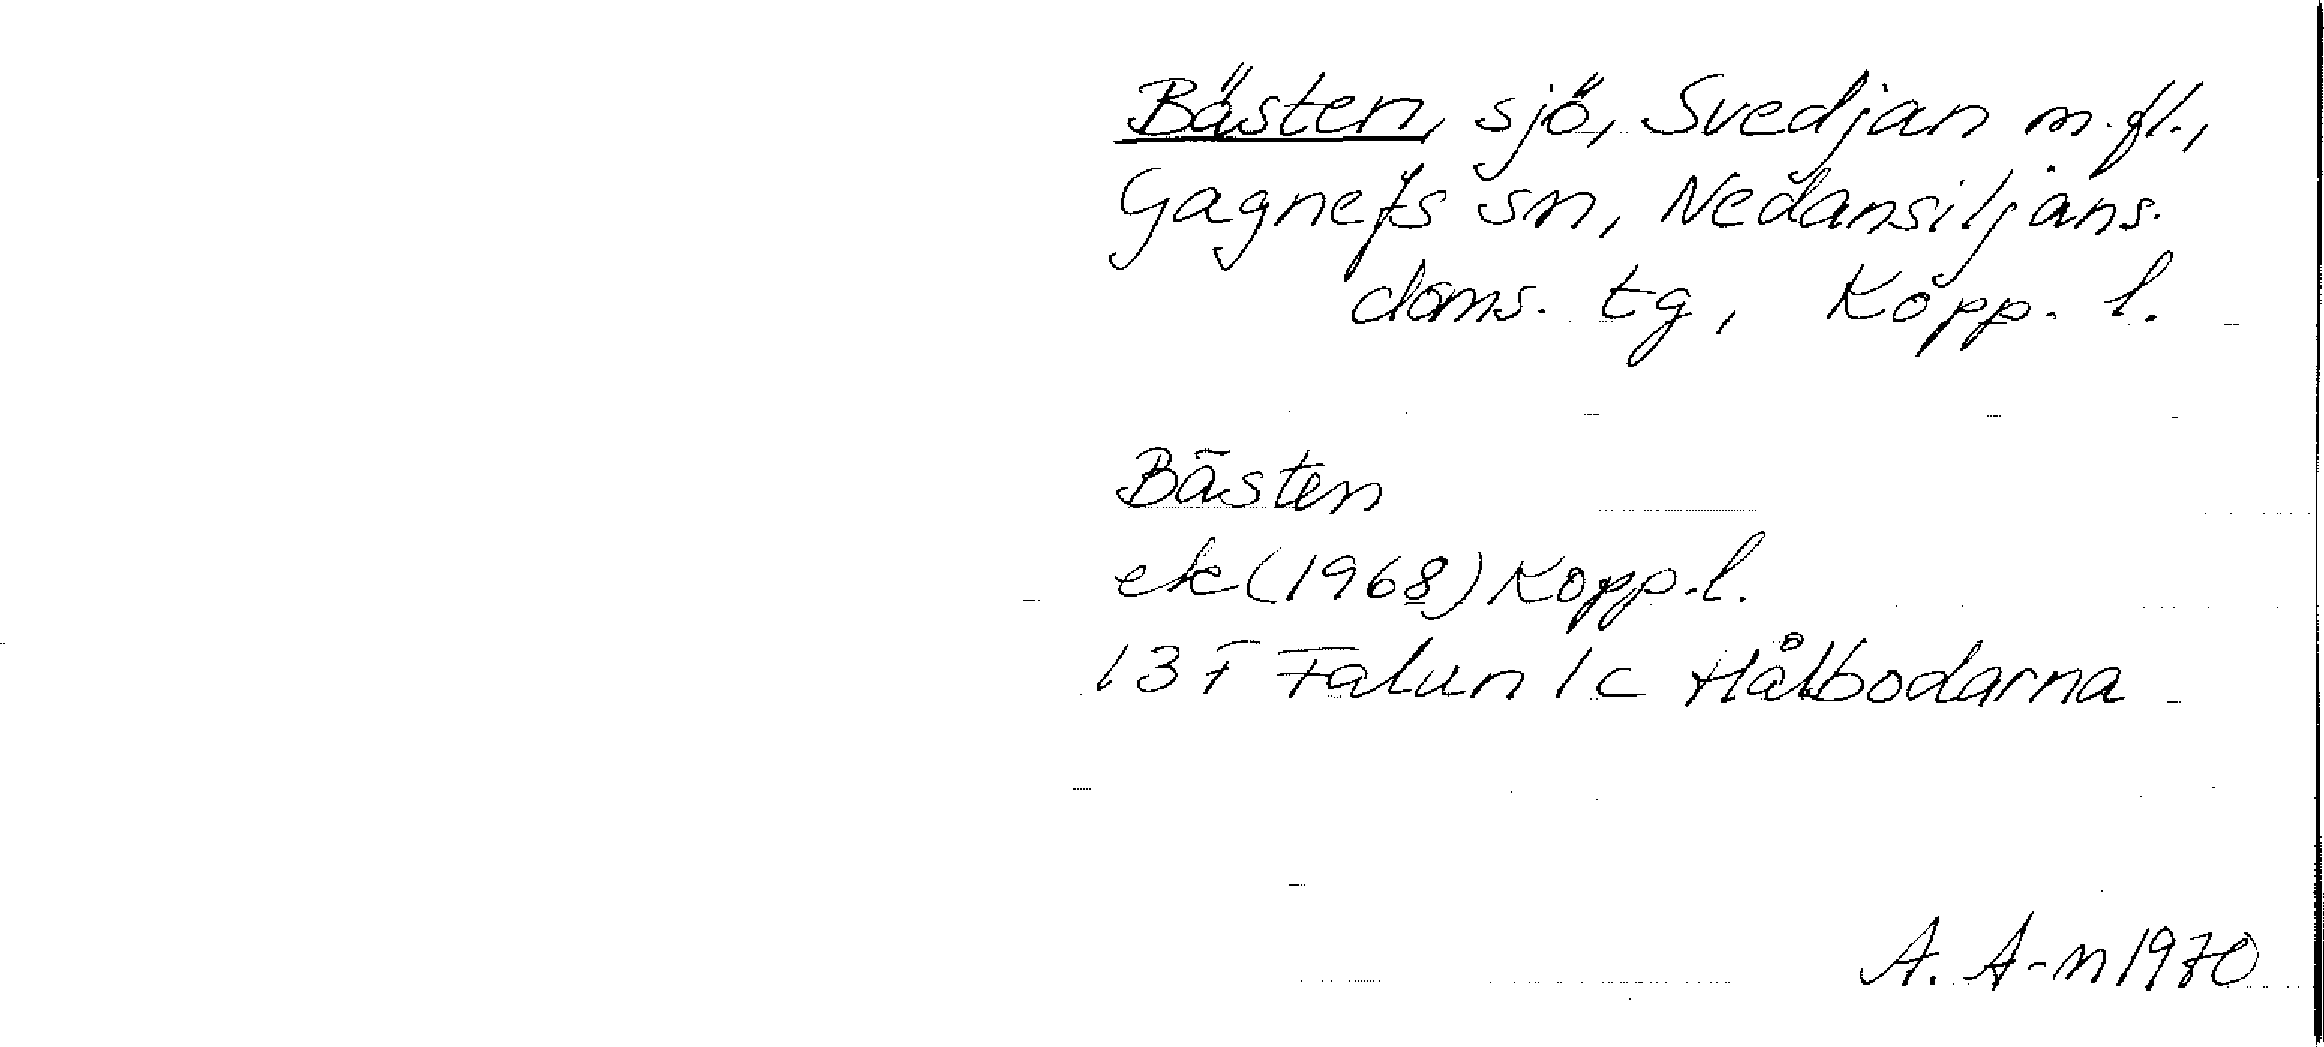 Bästen, sjö, Svedjan m.fl.,
Gagnefs sn, Nedansiljans.
doms. tg, Kopp. l.
Bästen
ek (1968) Kopp. l.
13 F Falun 1c Hålbodarna
A. A-n 1970